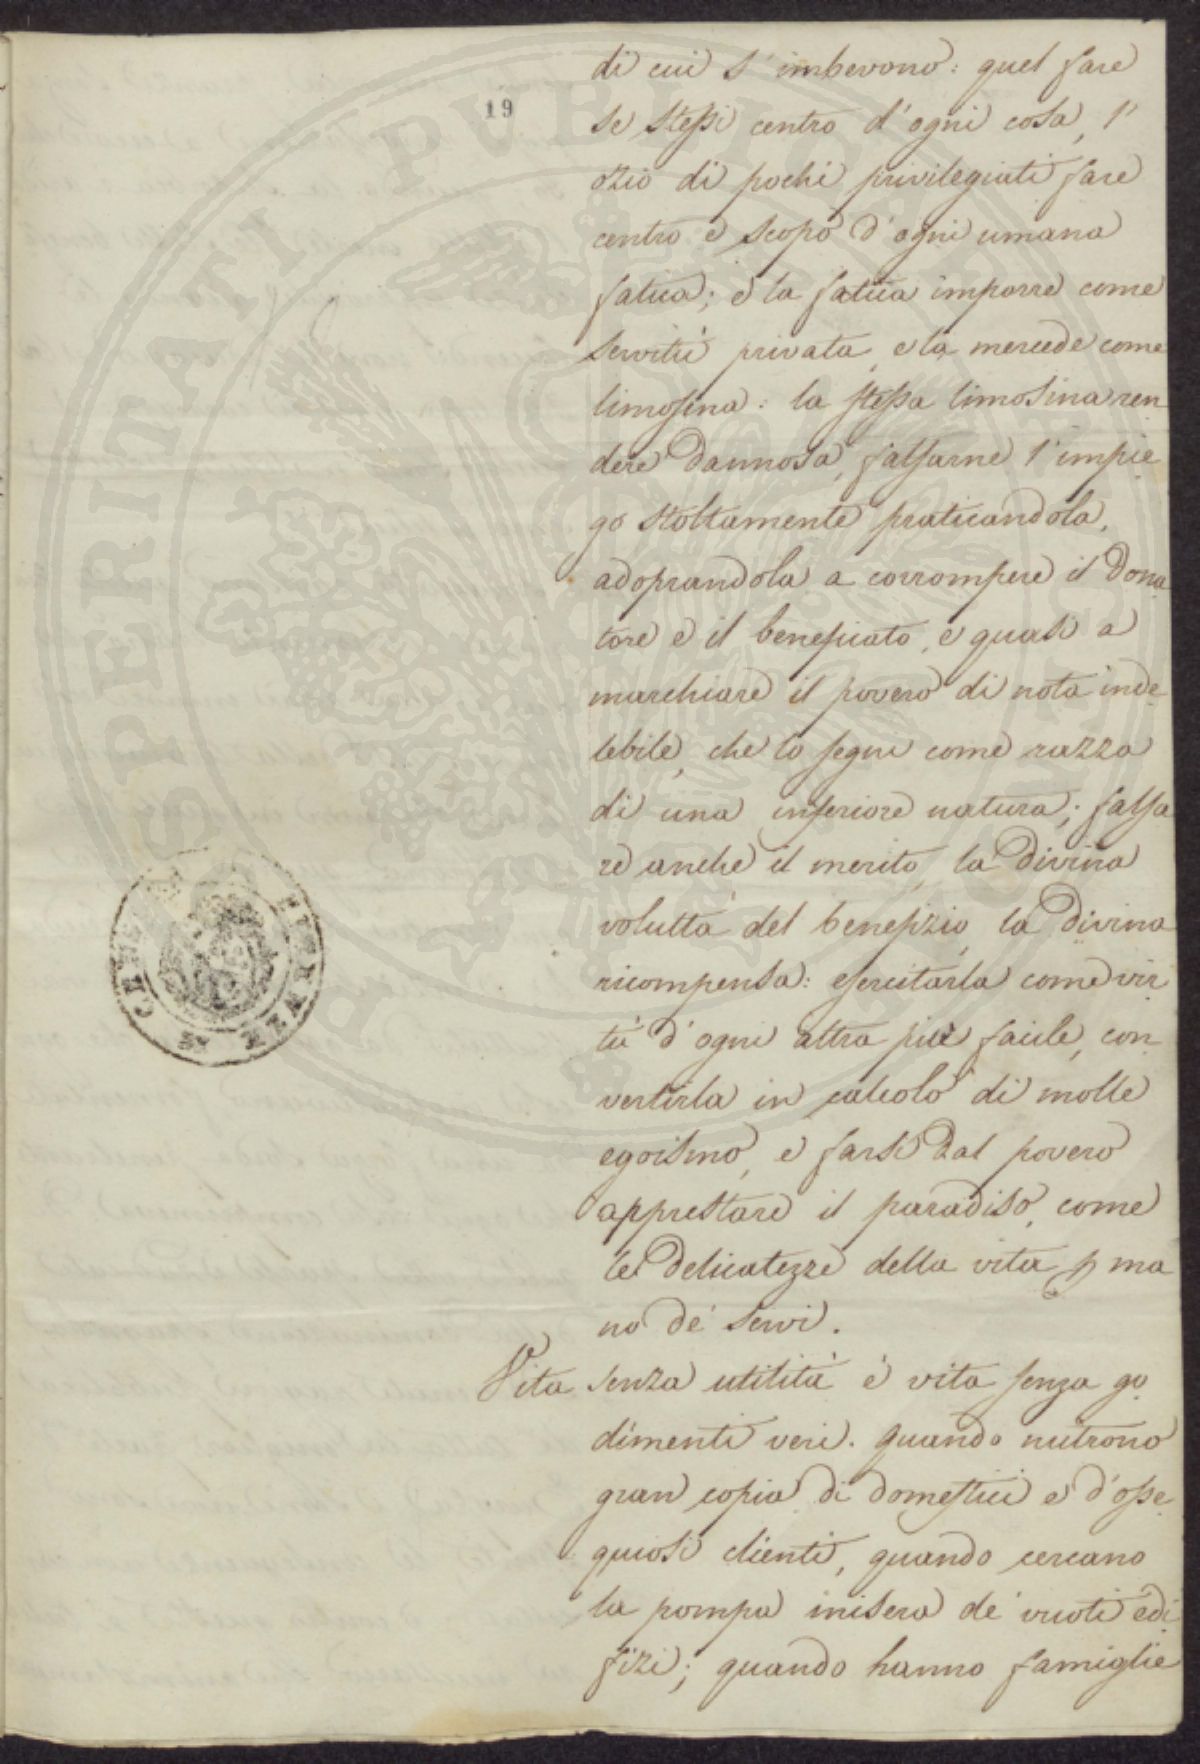 19
di cui s'imbevono: quel fare
se stessi centro d'ogni cosa, l'
ozio di pochi privilegiati fare
centro e scopo d'ogni umana
fatica; e la fatica imporre come
servitù privata, e la mercede come
limosina: la stessa limosina ren
dere dannosa, falsarne l'impie
go stoltamente praticandola,
adoprandola a corrompere il dona
tore e il beneficato, e quasi a
marchiare il povero di nota inde
lebile, che lo segni come razza
di una inferiore natura; falsa
re anche il merito, la divina
voluttà del benefizio, la divina
ricompensa: esercitarla come vir
tù d'ogni altra più facile, con
vertirla in calcolo di molle
egoismo, e farsi dal povero
apprestare il paradiso, come
le delicatezze della vita p ma
no de' servi.
Vita senza utilità è vita senza go
dimenti veri. Quando nutrono
gran copia di domestici e d'osse
quiosi clienti, quando cercano
la pompa misera de' vuoti edi
fizi; quando hanno famiglie
PROSPERITATI PUBLICAE